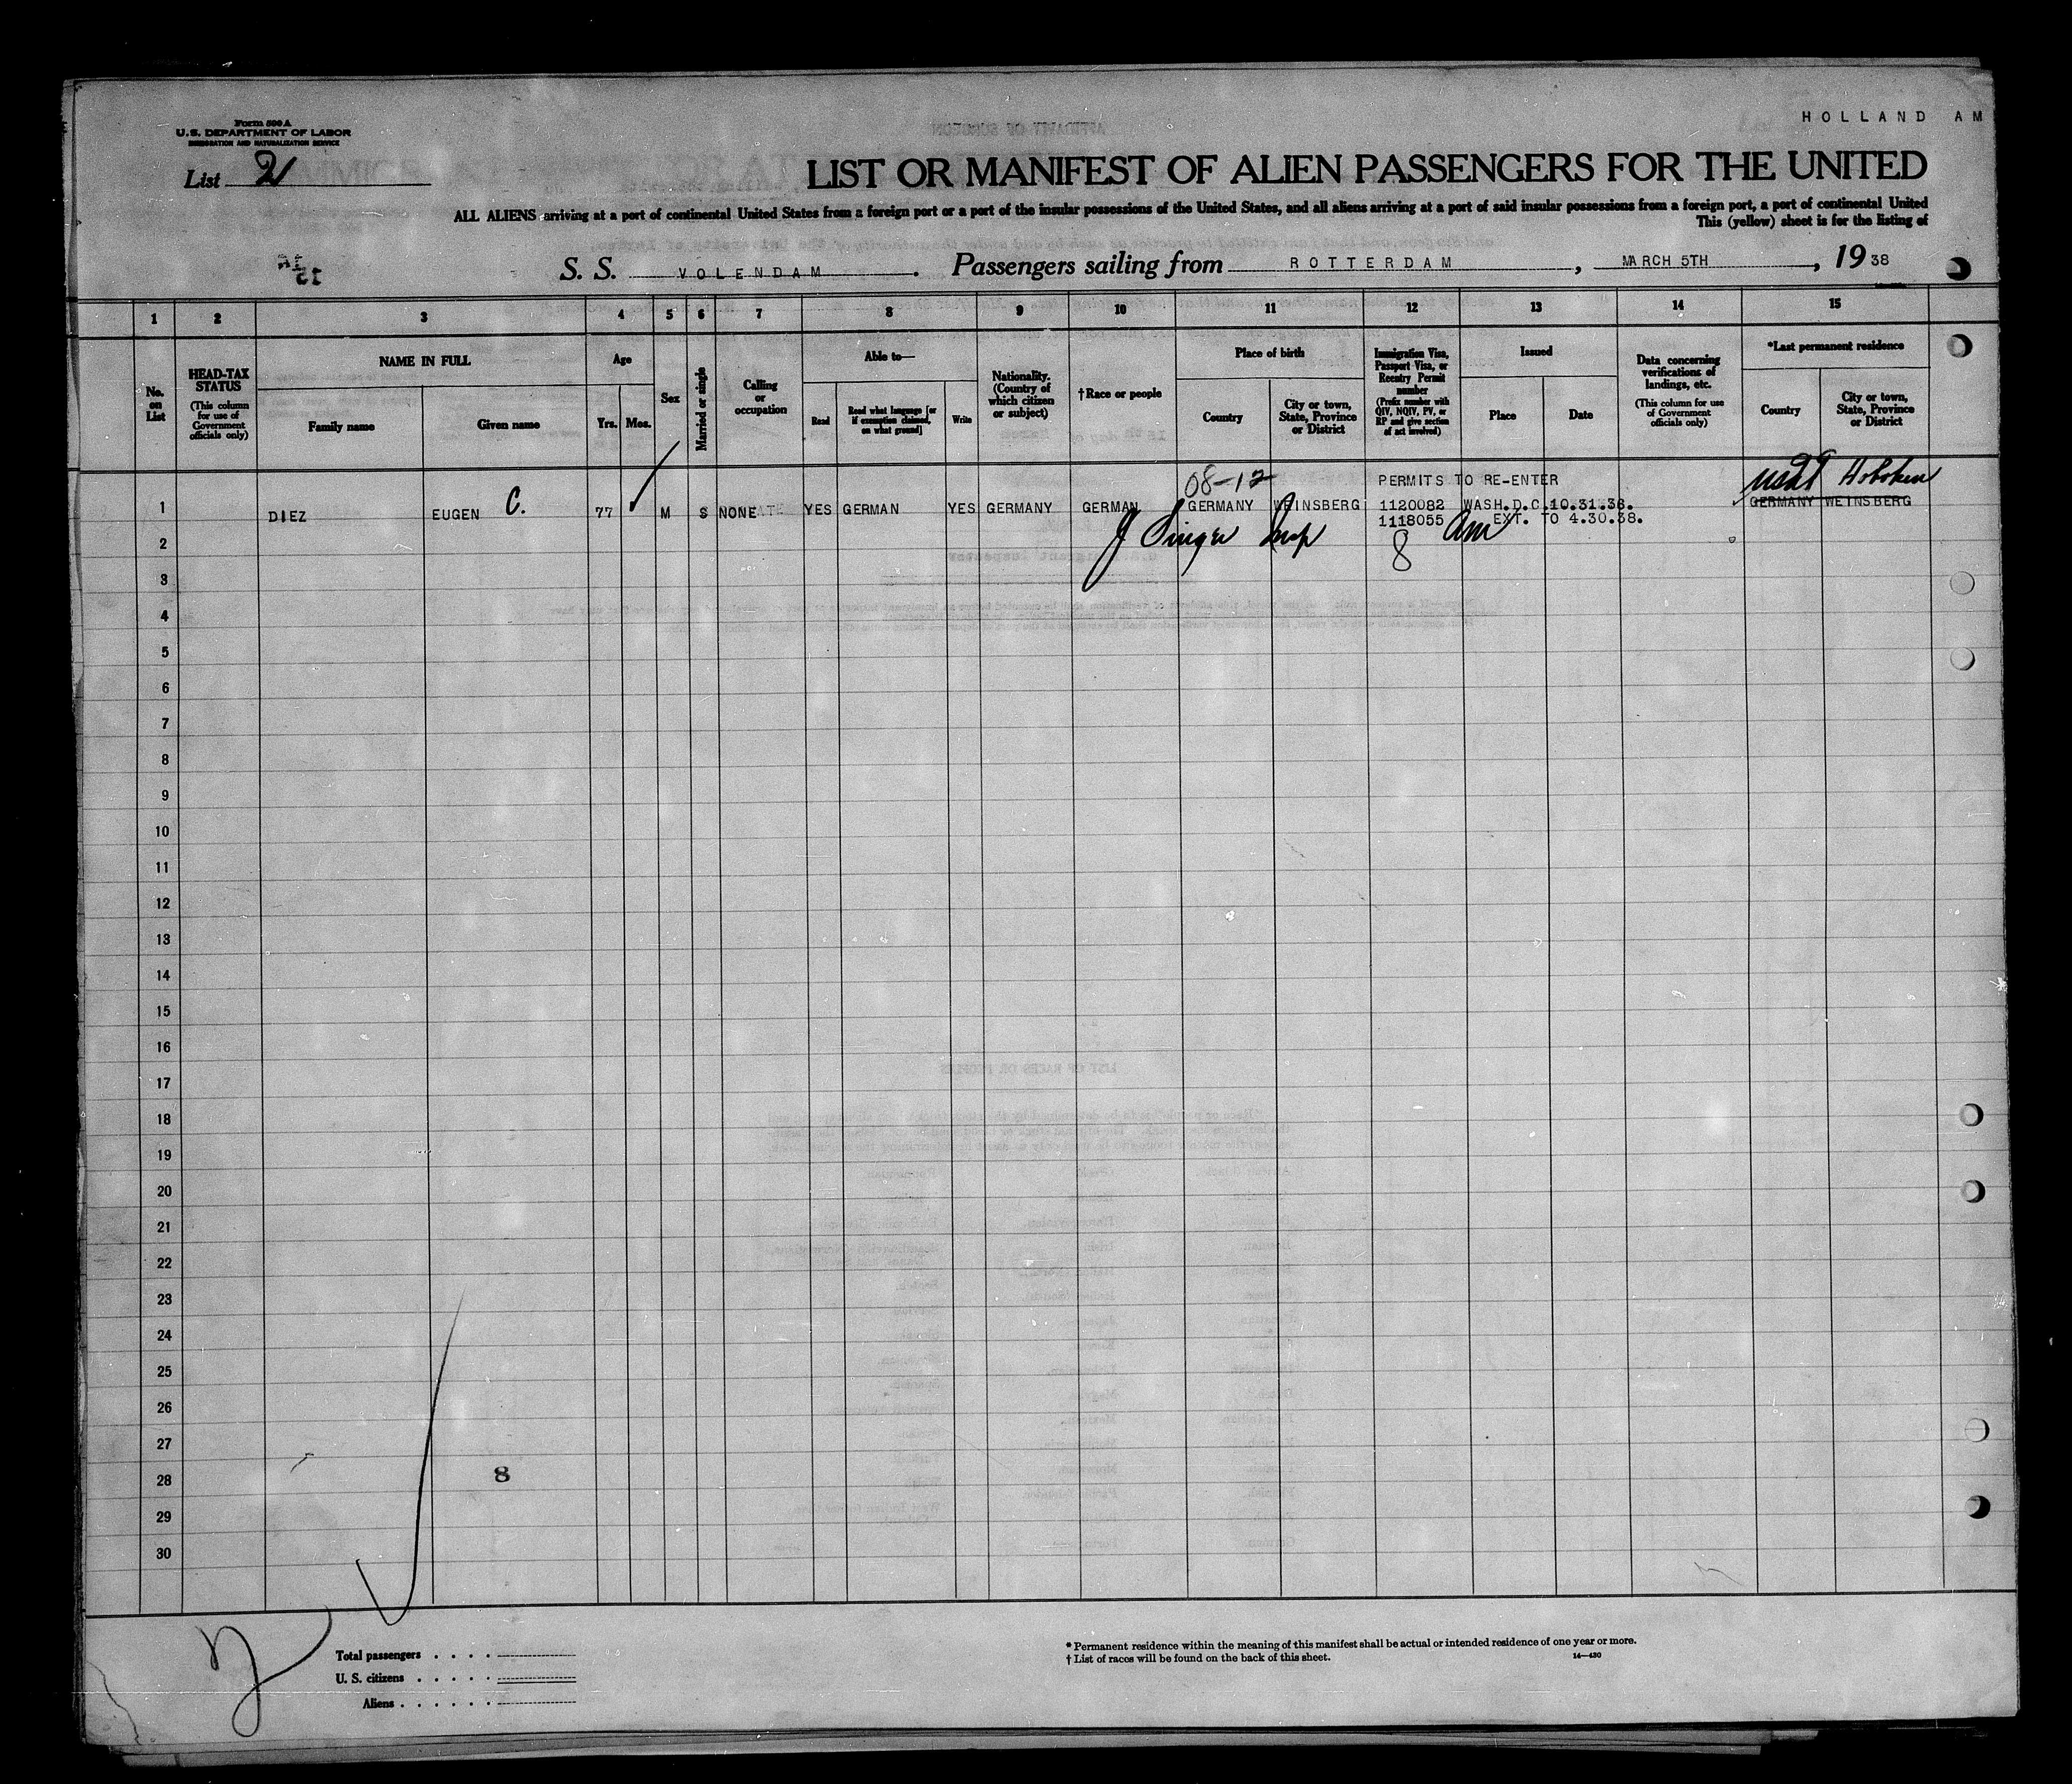 HOLLAND AM
Form 500 A
U. S. DEPARTMENT OF LABOR
IMMIGRATION AND NATURALIZATION SERVICE
List 2
LIST OR MANIFEST OF ALIEN PASSENGERS FOR THE UNITED
ALL ALIENS arriving at a port of continental United States from a foreign port or a port of the insular possessions of the United States, and all aliens arriving at a port of said insular possessions from a foreign port, a port of continental United
This (yellow) sheet is for the listing of
S. S. VOLENDAM . Passengers sailing from ROTTERDAM , MARCH 5TH , 19 38
1 2 3 4 5 6 7 8 9 10 11 12 13 14 15
No. on List
HEAD-TAX STATUS
(This column for use of Government officials only)
NAME IN FULL
Family name
Given name
Age
Yrs. Mos.
Sex
Married or single
Calling or occupation
Able to—
Read
Read what language [or if exemption claimed, on what ground]
Write
Nationality. (Country of which citizen or subject)
†Race or people
Place of birth
Country
City or town, State, Province or District
Immigration Visa, Passport Visa, or Reentry Permit number
(Prefix number with QIV, NQIV, PV, or RP and give section of act involved)
Issued
Place
Date
Data concerning verifications of landings, etc.
(This column for use of Government officials only)
*Last permanent residence
Country
City or town, State, Province or District
08-12 PERMITS TO RE-ENTER Hoboken
1 DIEZ EUGEN C. 77 M S NONE YES GERMAN YES GERMANY GERMAN GERMANY WEINSBERG 1120082 WASH.D.C. 10.31.38. GERMANY WEINSBERG
1118055 EXT. TO 4.30.38.
J Singer Insp 8
2
3
4
5
6
7
8
9
10
11
12
13
14
15
16
17
18
19
20
21
22
23
24
25
26
27
28 8
29
30
2
Total passengers . . . .
U. S. citizens . . . . .
Aliens . . . . . .
* Permanent residence within the meaning of this manifest shall be actual or intended residence of one year or more.
† List of races will be found on the back of this sheet.
14—430